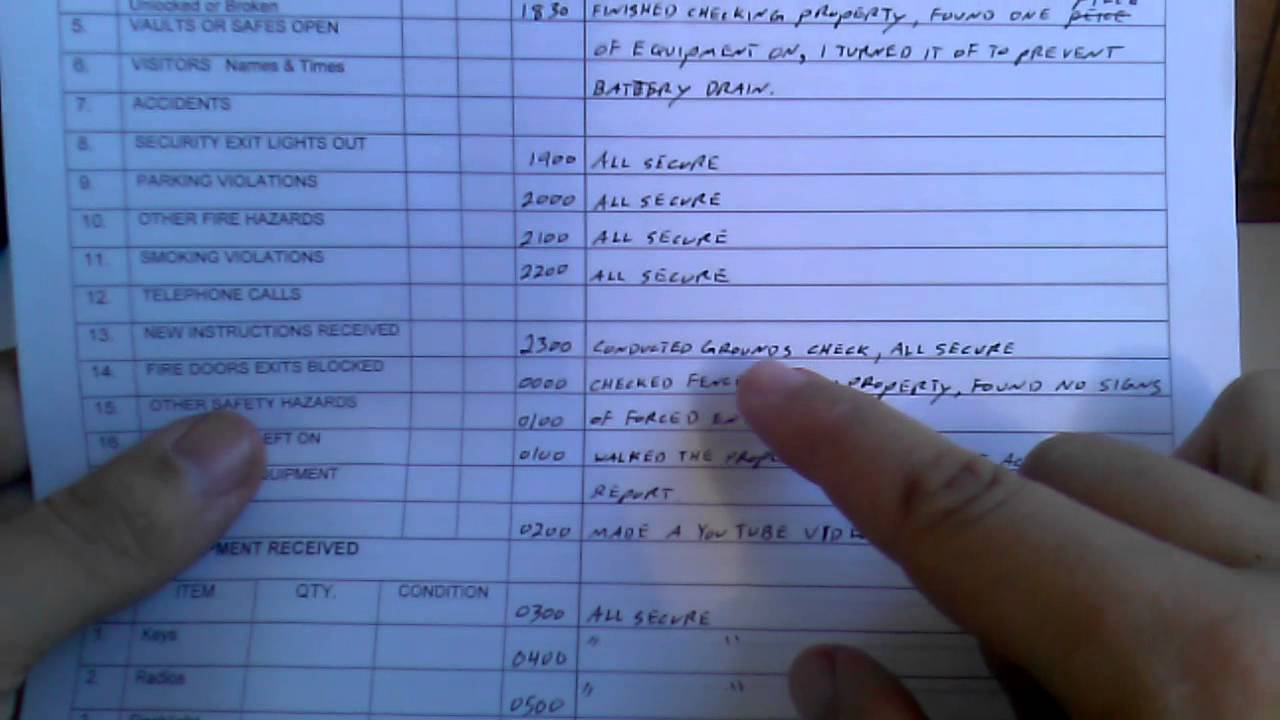 Unlocked or Broken
1830 FINISHED CHECKING PROPERTY, FOUND ONE PEICE
5. VAULTS OR SAFES OPEN
OF EQUIPMENT ON, I TURNED IT OF TO PREVENT
6. VISITORS Names & Times
BATTERY DRAIN.
7. ACCIDENTS
8. SECURITY EXIT LIGHTS OUT
1900 ALL SECURE
9. PARKING VIOLATIONS
2000 ALL SECURE
10. OTHER FIRE HAZARDS
2100 ALL SECURE
11. SMOKING VIOLATIONS
2200 ALL SECURE
12. TELEPHONE CALLS
13. NEW INSTRUCTIONS RECEIVED
2300 CONDUCTED GROUNDS CHECK, ALL SECURE
14. FIRE DOORS EXITS BLOCKED
0000 CHECKED PROPERTY, FOUND NO SIGNS
15. OTHER SAFETY HAZARDS
0100 OF FORCED
16. ON
0100 WALKED THE
REPORT
0200 MADE A YOUTUBE
RECEIVED
ITEM QTY. CONDITION
0300 ALL SECURE
1. Keys
0400 " "
2. Radios
0500 " "